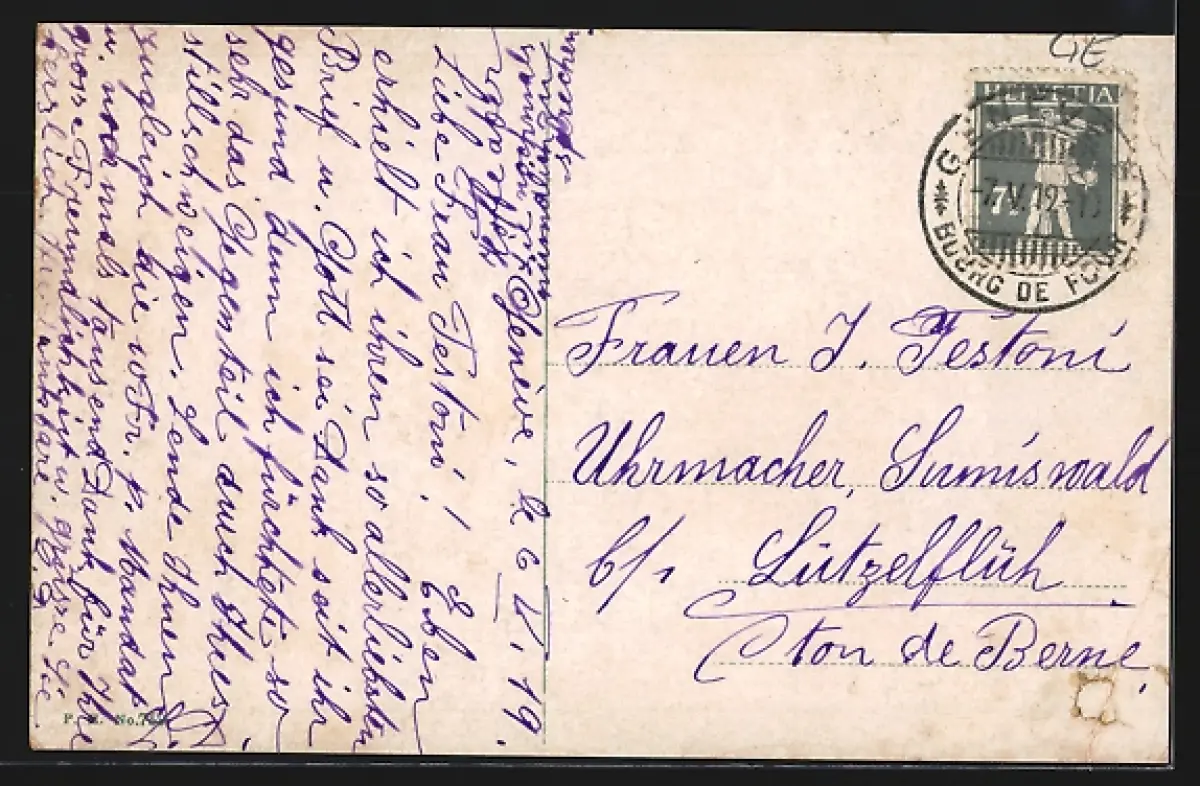 GE
HELVETIA
7½
GENÈVE
-7.V.19-
BOURG DE FOUR
Genève, le 6 V. 19.
Liebe Frau Testoni! Eben
erhielt ich ihren so allerliebsten
Brief u. Gott sei Dank seit ihr
gesund denn ich fürchtete so
sehr das Gegenteil durch Ihres
stillschweigen. Sende Ihnen
zugleich die Fr. p. Mandat
u. nochmals tausend Dank für Ihre
grosse Freundlichkeit u. grüsse Sie
herzlich
Frauen J. Testoni
Uhrmacher, Sumiswald
b/. Lützelflüh
Cton de Berne,
No.